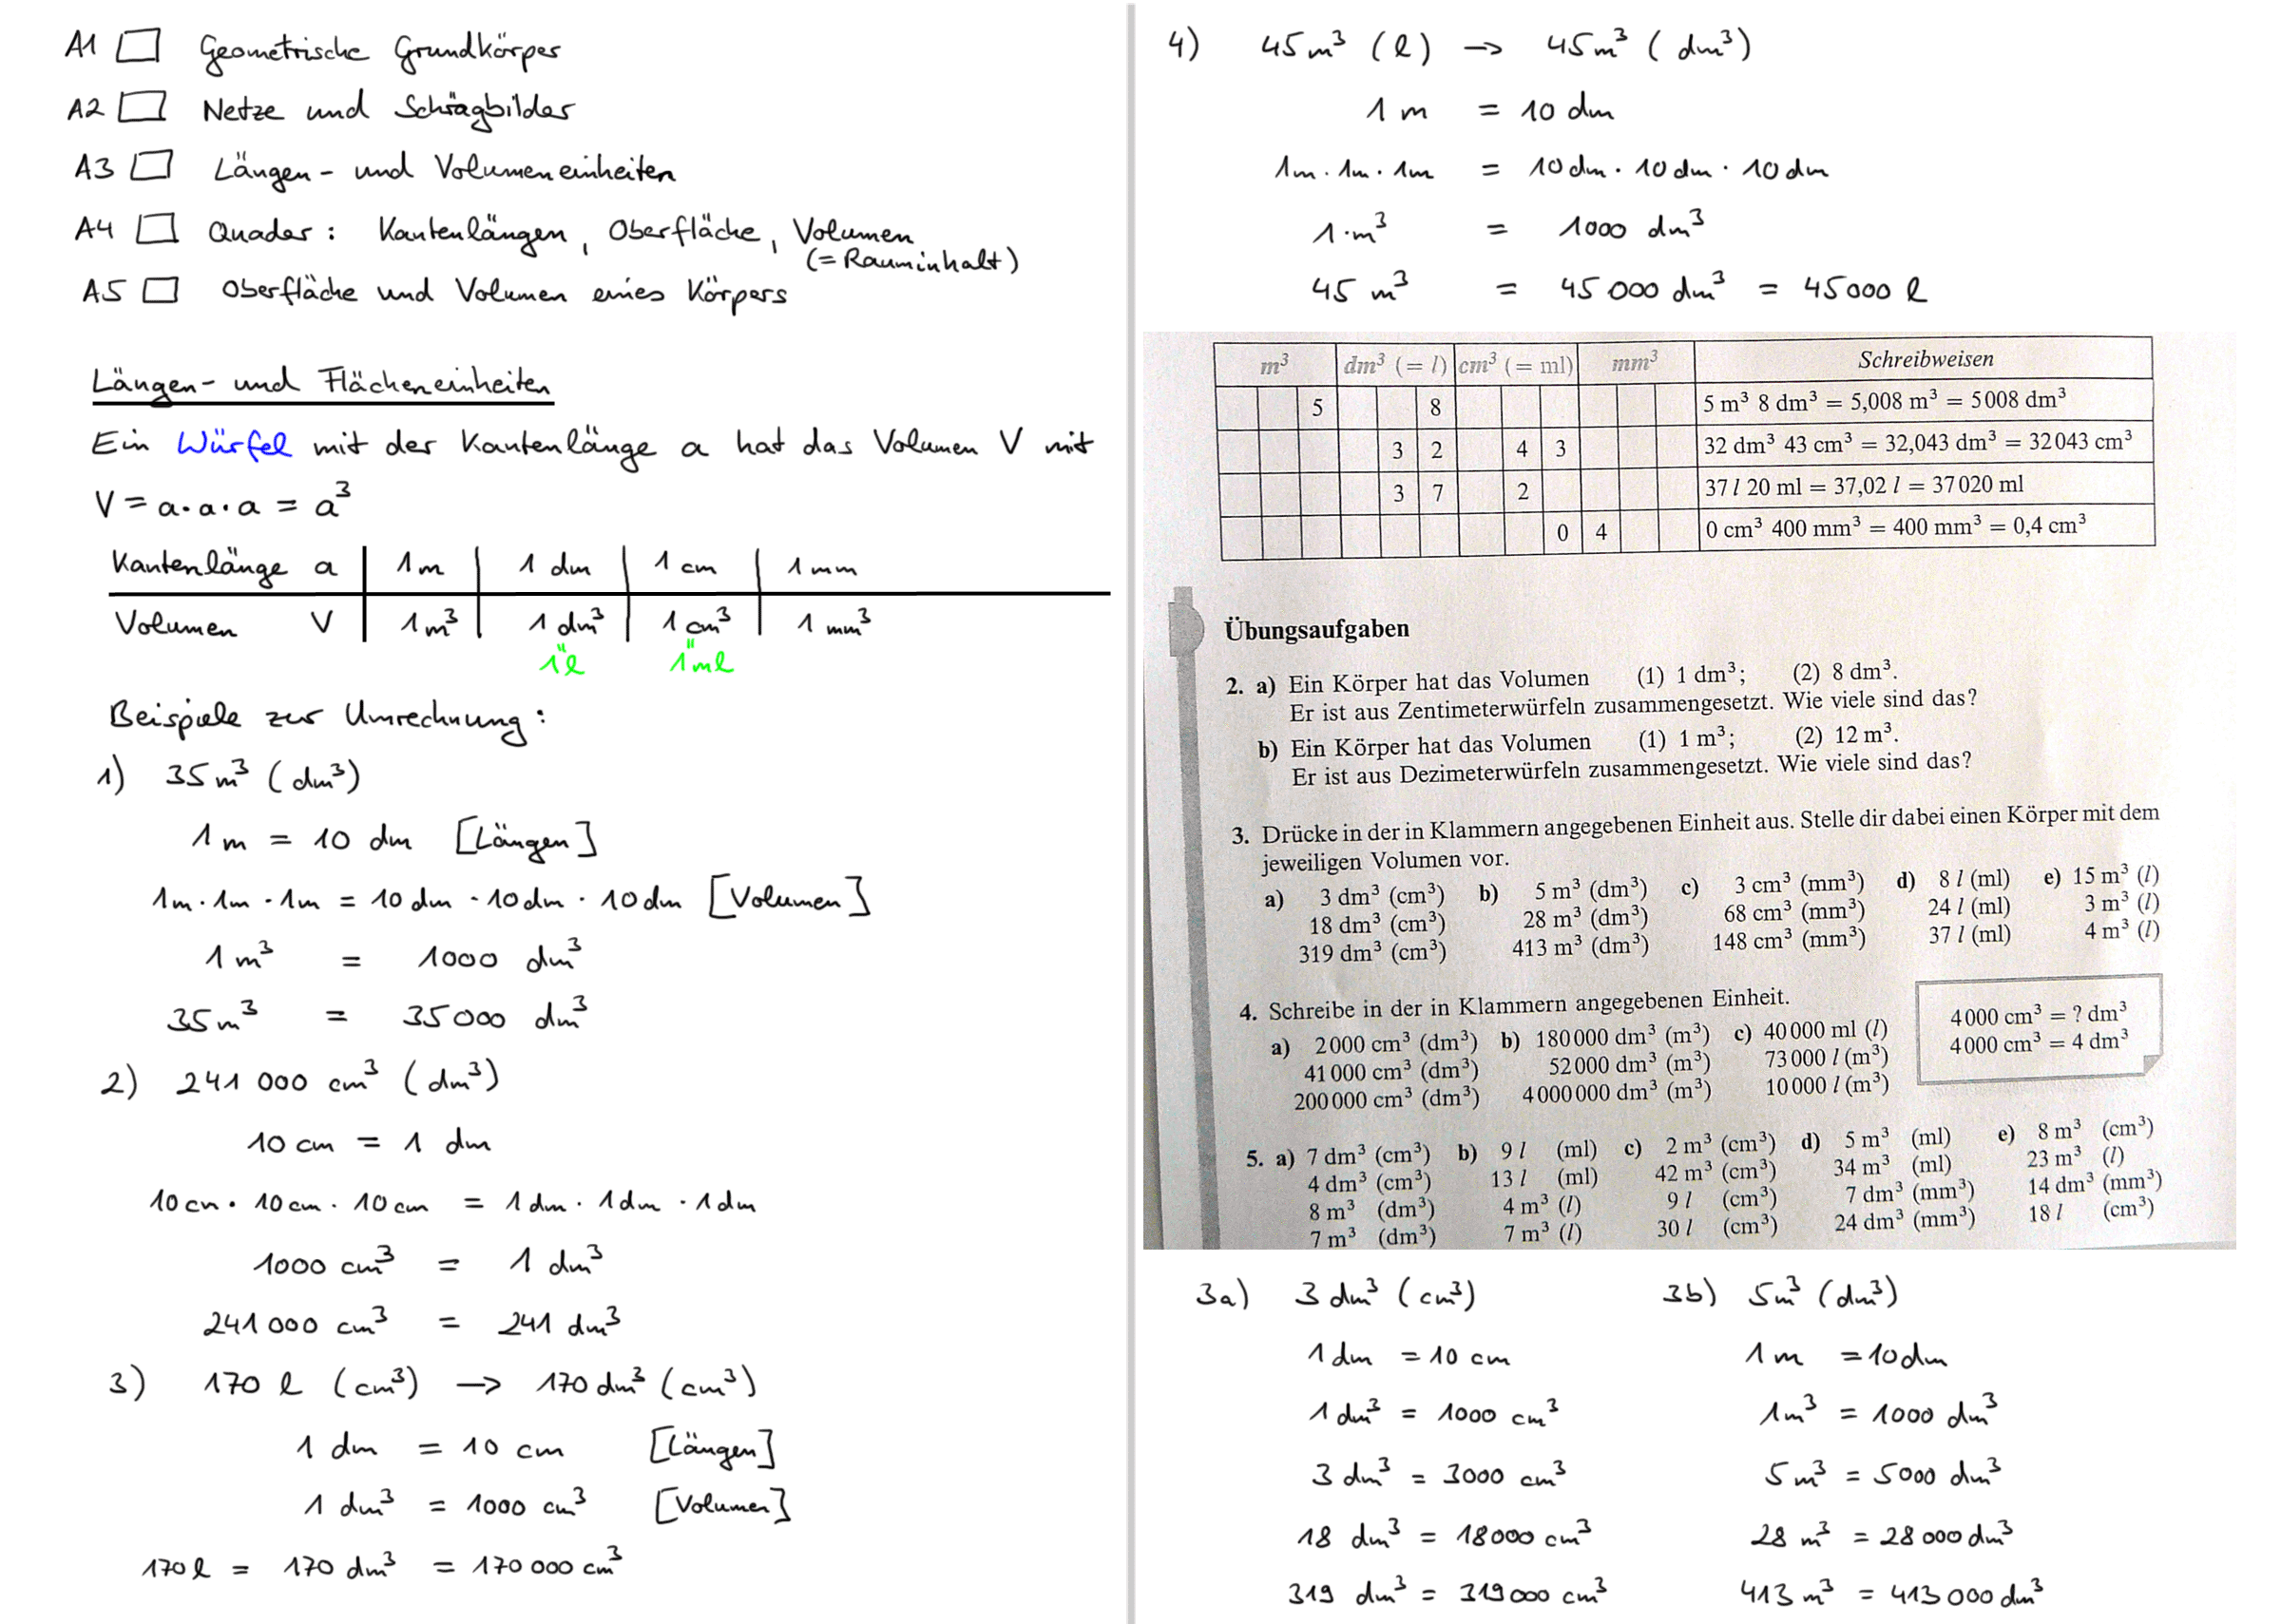 A1 Geometrische Grundkörper
A2 Netze und Schrägbilder
A3 Längen- und Volumeneinheiten
A4 Quader: Kantenlängen, Oberfläche, Volumen
(= Rauminhalt)
A5 Oberfläche und Volumen eines Körpers
Längen- und Flächeneinheiten
Ein Würfel mit der Kantenlänge a hat das Volumen V mit
V = a·a·a = a³
Kantenlänge a 1 m 1 dm 1 cm 1 mm
Volumen V 1 m³ 1 dm³ 1 cm³ 1 mm³
" "
1 l 1 ml
Beispiele zur Umrechnung:
1) 35 m³ (dm³)
1 m = 10 dm [Längen]
1m · 1m · 1m = 10 dm · 10 dm · 10 dm [Volumen]
1 m³ = 1000 dm³
35 m³ = 35 000 dm³
2) 241 000 cm³ (dm³)
10 cm = 1 dm
10 cm · 10 cm · 10 cm = 1 dm · 1 dm · 1 dm
1000 cm³ = 1 dm³
241 000 cm³ = 241 dm³
3) 170 l (cm³) → 170 dm³ (cm³)
1 dm = 10 cm [Längen]
1 dm³ = 1000 cm³ [Volumen]
170 l = 170 dm³ = 170 000 cm³
4) 45 m³ (l) → 45 m³ (dm³)
1 m = 10 dm
1m · 1m · 1m = 10 dm · 10 dm · 10 dm
1·m³ = 1000 dm³
45 m³ = 45 000 dm³ = 45 000 l
m³ dm³ (= l) cm³ (= ml) mm³ Schreibweisen
5 8 5 m³ 8 dm³ = 5,008 m³ = 5008 dm³
3 2 4 3 32 dm³ 43 cm³ = 32,043 dm³ = 32043 cm³
3 7 2 37 l 20 ml = 37,02 l = 37020 ml
0 4 0 cm³ 400 mm³ = 400 mm³ = 0,4 cm³
Übungsaufgaben
2. a) Ein Körper hat das Volumen (1) 1 dm³; (2) 8 dm³.
Er ist aus Zentimeterwürfeln zusammengesetzt. Wie viele sind das?
b) Ein Körper hat das Volumen (1) 1 m³; (2) 12 m³.
Er ist aus Dezimeterwürfeln zusammengesetzt. Wie viele sind das?
3. Drücke in der in Klammern angegebenen Einheit aus. Stelle dir dabei einen Körper mit dem
jeweiligen Volumen vor.
a) 3 dm³ (cm³) b) 5 m³ (dm³) c) 3 cm³ (mm³) d) 8 l (ml) e) 15 m³ (l)
18 dm³ (cm³) 28 m³ (dm³) 68 cm³ (mm³) 24 l (ml) 3 m³ (l)
319 dm³ (cm³) 413 m³ (dm³) 148 cm³ (mm³) 37 l (ml) 4 m³ (l)
4. Schreibe in der in Klammern angegebenen Einheit.
a) 2000 cm³ (dm³) b) 180000 dm³ (m³) c) 40000 ml (l)
41000 cm³ (dm³) 52000 dm³ (m³) 73000 l (m³)
200000 cm³ (dm³) 4000000 dm³ (m³) 10000 l (m³)
4000 cm³ = ? dm³
4000 cm³ = 4 dm³
5. a) 7 dm³ (cm³) b) 9 l (ml) c) 2 m³ (cm³) d) 5 m³ (ml) e) 8 m³ (cm³)
4 dm³ (cm³) 13 l (ml) 42 m³ (cm³) 34 m³ (ml) 23 m³ (l)
8 m³ (dm³) 4 m³ (l) 9 l (cm³) 7 dm³ (mm³) 14 dm³ (mm³)
7 m³ (dm³) 7 m³ (l) 30 l (cm³) 24 dm³ (mm³) 18 l (cm³)
3a) 3 dm³ (cm³)
1 dm = 10 cm
1 dm³ = 1000 cm³
3 dm³ = 3000 cm³
18 dm³ = 18000 cm³
319 dm³ = 319000 cm³
3b) 5m³ (dm³)
1 m = 10 dm
1m³ = 1000 dm³
5 m³ = 5000 dm³
28 m³ = 28 000 dm³
413 m³ = 413 000 dm³